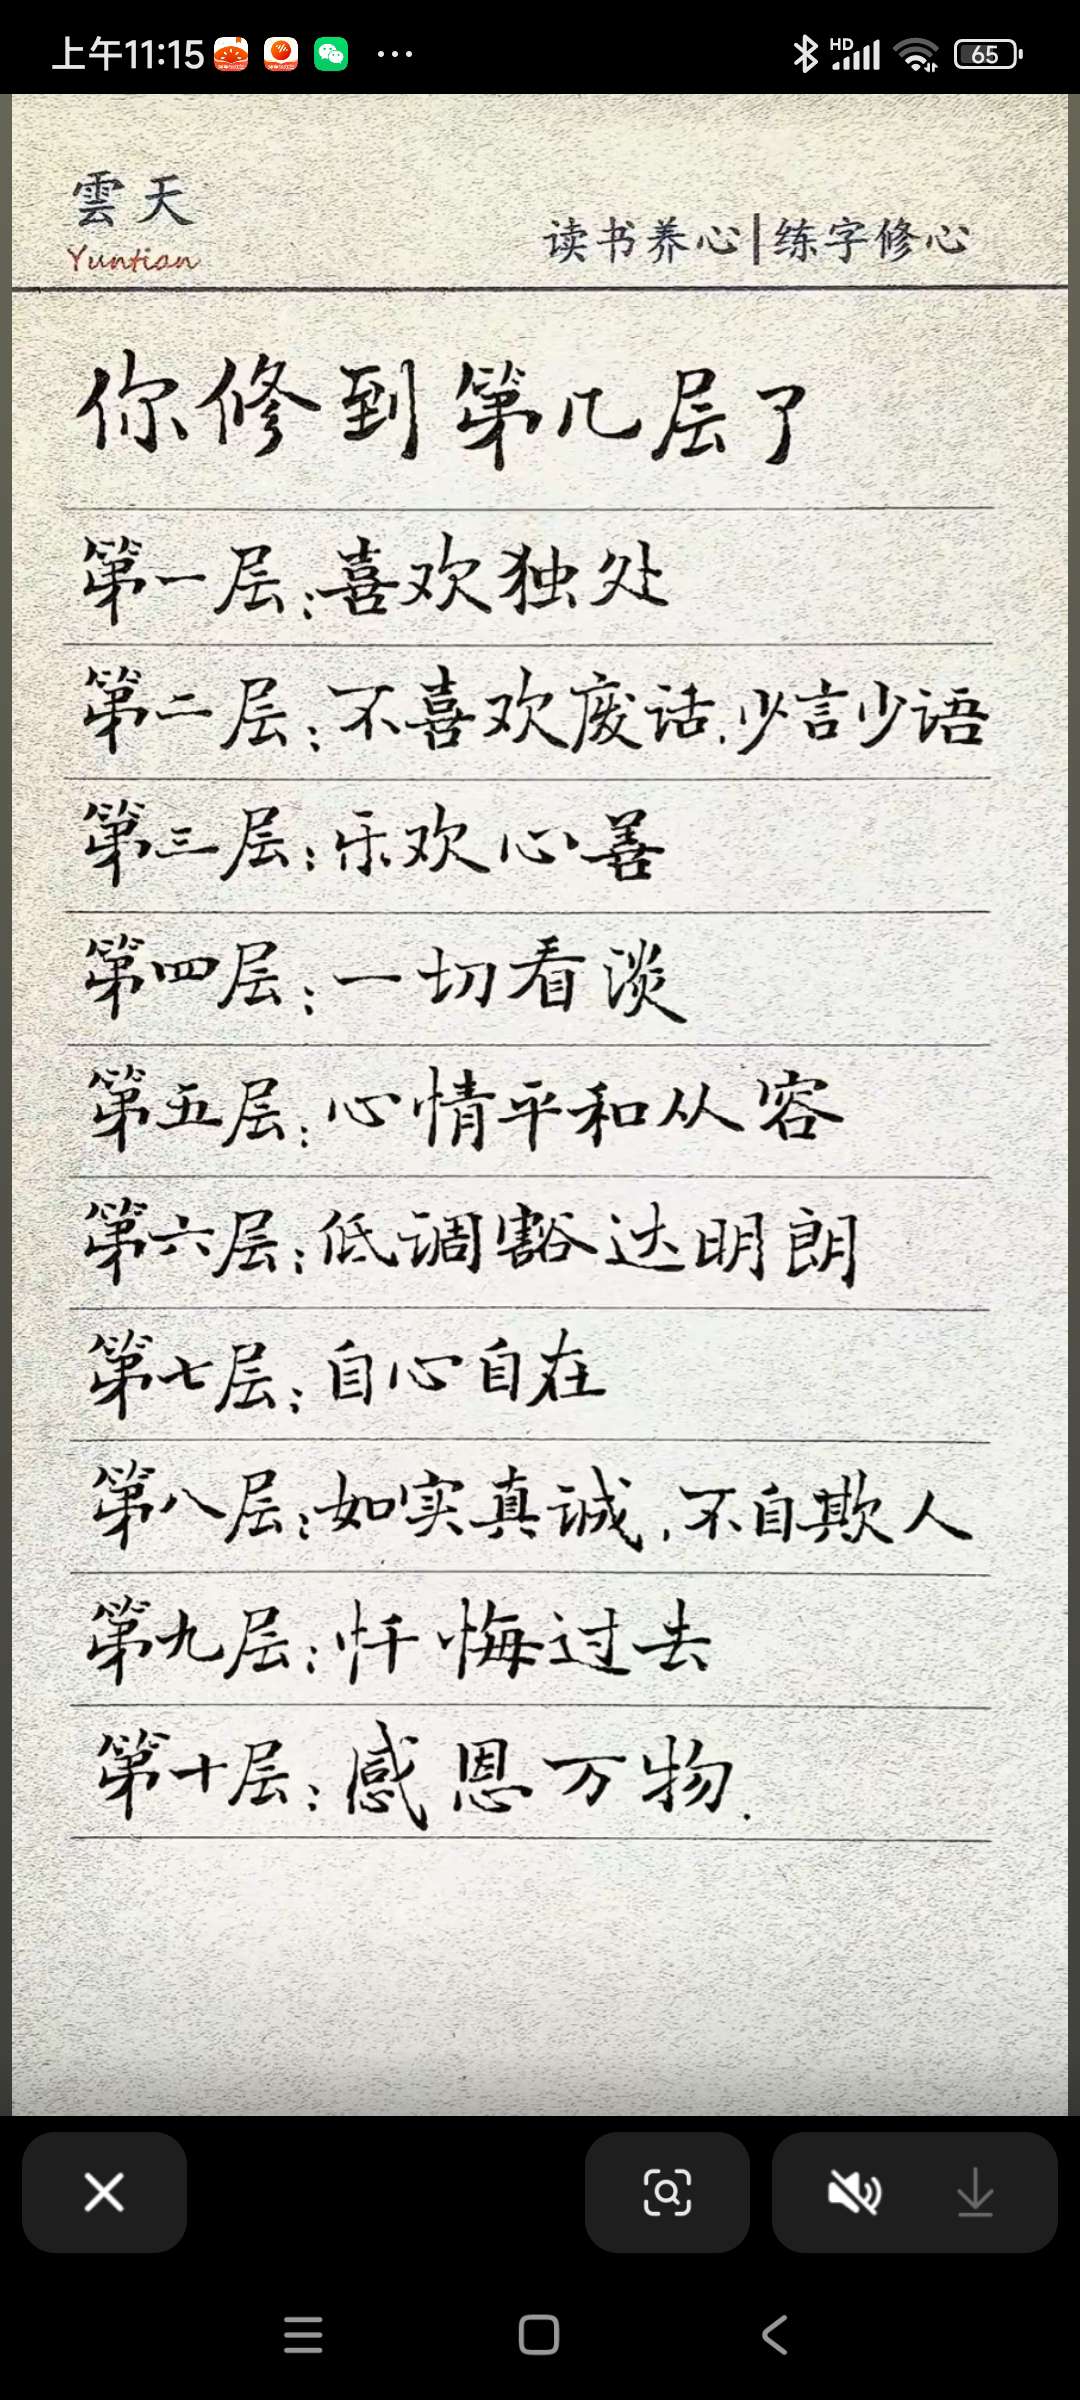 上午11:15
HD
65
雲天
Yuntian
读书养心|练字修心
你修到第几层了
第一层:喜欢独处
第二层:不喜欢废话,少言少语
第三层:乐欢心善
第四层:一切看淡
第五层:心情平和从容
第六层:低调豁达明朗
第七层:自心自在
第八层:如实真诚,不自欺人
第九层:忏悔过去
第十层:感恩万物.